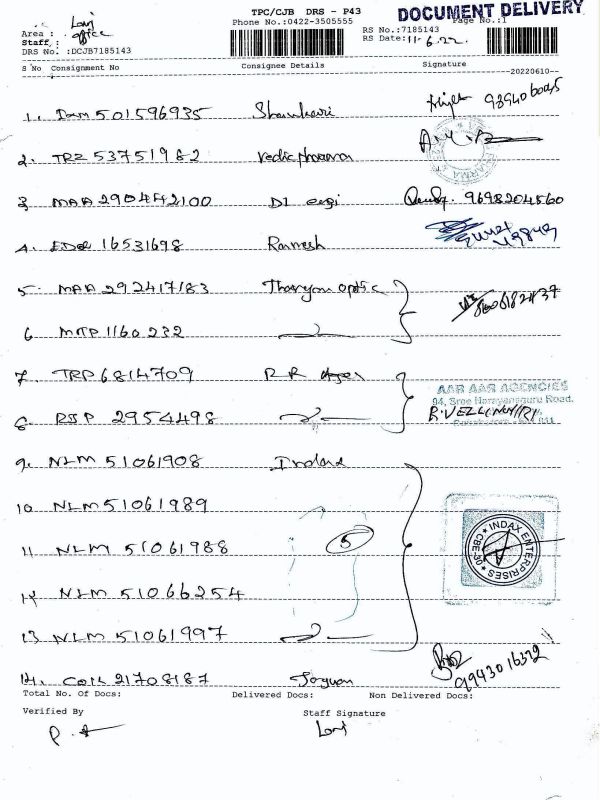 TPC/CJB DRS - P43
DOCUMENT DELIVERY
Phone No.:0422-3505555
Page No.:1
Area : office
RS No.:7185143
Staff :
RS Date: 11.6.22
DRS No. :DCJB7185143
S No Consignment No Consignee Details Signature
20220610
1. 501596935
2. TRZ 53751982 Vedic pharma
3 MAA 290442100 DI 9698204560
4. 16531698 Ramesh
5. MAA 292417183 optic
6 MTP 1160232
7. TRP 6814709 R R
AAR AAR AGENCIES
94, Sree Narayanaguru Road.
8. RJP 2954498 R. VELLINGIRI
9. NLM 51061908
10 NLM 51061989
INDAX ENTERPRISES
CBE-30
11 NLM 51061988 5
12 NLM 51066254
13 NLM 51061997
9943016322
14. COIL 21708187
Total No. Of Docs: Delivered Docs: Non Delivered Docs:
Verified By Staff Signature